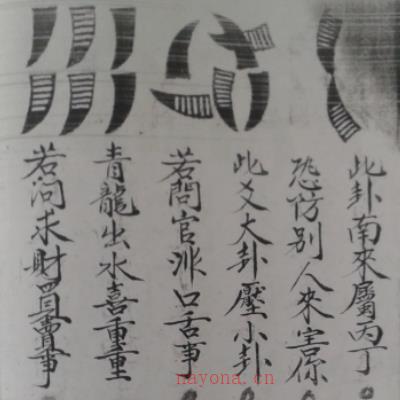 此卦南來屬丙丁
恐防別人來害你
此爻大卦壓小卦
若問官非口舌事
青龍出水喜重重
若问求財買賣事
nayona.cn